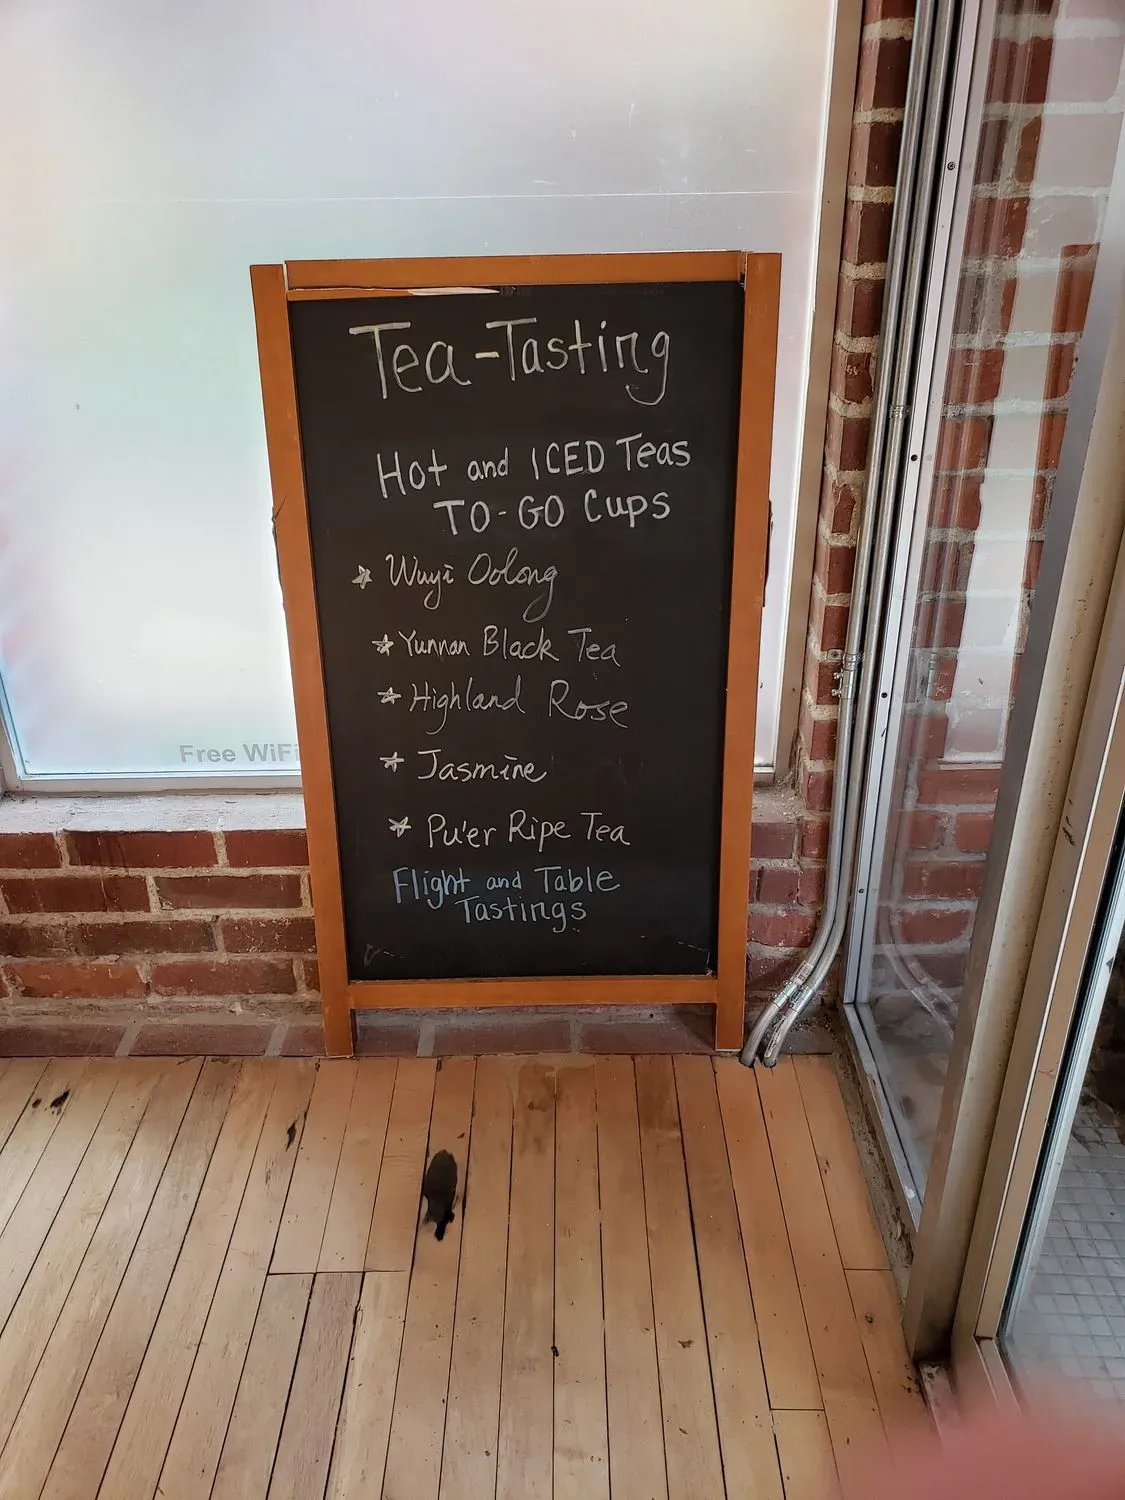 Tea-Tasting
Hot and ICED Teas
TO-GO Cups
☆ Wuyi Oolong
☆ Yunnan Black Tea
☆ Highland Rose
☆ Jasmine
☆ Pu'er Ripe Tea
Flight and Table
Tastings
Free WiFi